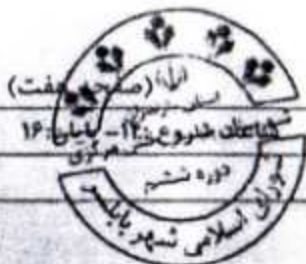 (صفحه هفت)
ساعت شروع: ۱۴- پایان: ۱۶
دوره ششم
شورای اسلامی شهر بابلسر